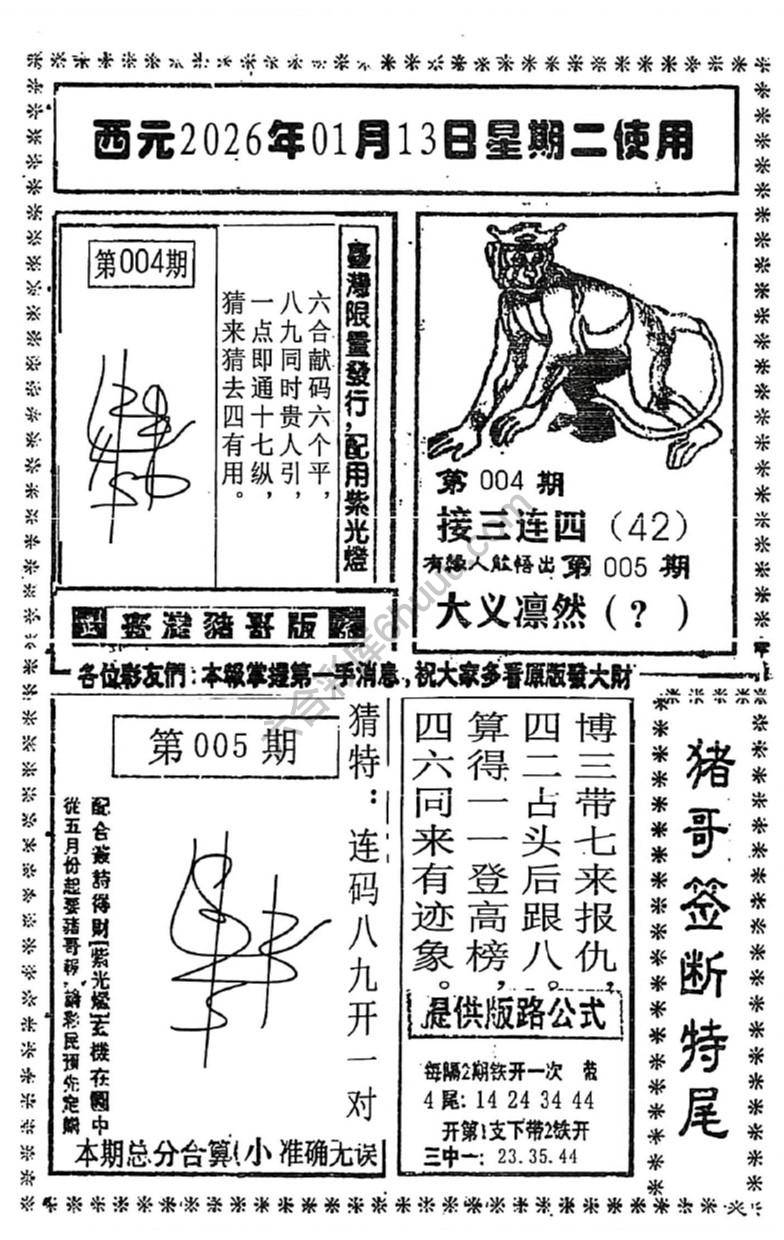 西元2026年01月13日星期二使用
第004期
臺灣限量發行,配用紫光燈
六合献码六个平,
八九同时贵人引,
一点即通十七纵,
猜来猜去四有用。
第 004 期
接三连四（42）
有缘人能悟出 第 005 期
大义凛然（？）
臺灣豬哥版
各位彩友們:本報掌握第一手消息,祝大家多看原版發大財
第 005 期
猜特:连码八九开一对
從五月份起要豬哥報,請彩民預先定購
本期总分合算(小 准确无误
博三带七来报仇,
四二占头后跟八。
算得一一登高榜,
四六同来有迹象。
提供版路公式
每隔2期铁开一次
4尾: 14 24 34 44
开第1支下带2铁开
三中一: 23.35.44
猪哥签断特尾
六合彩库6huuu.com